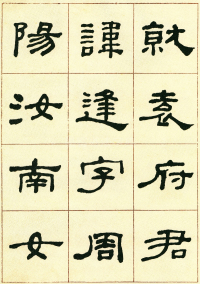 就袁府君
諱逢字周
陽汝南女